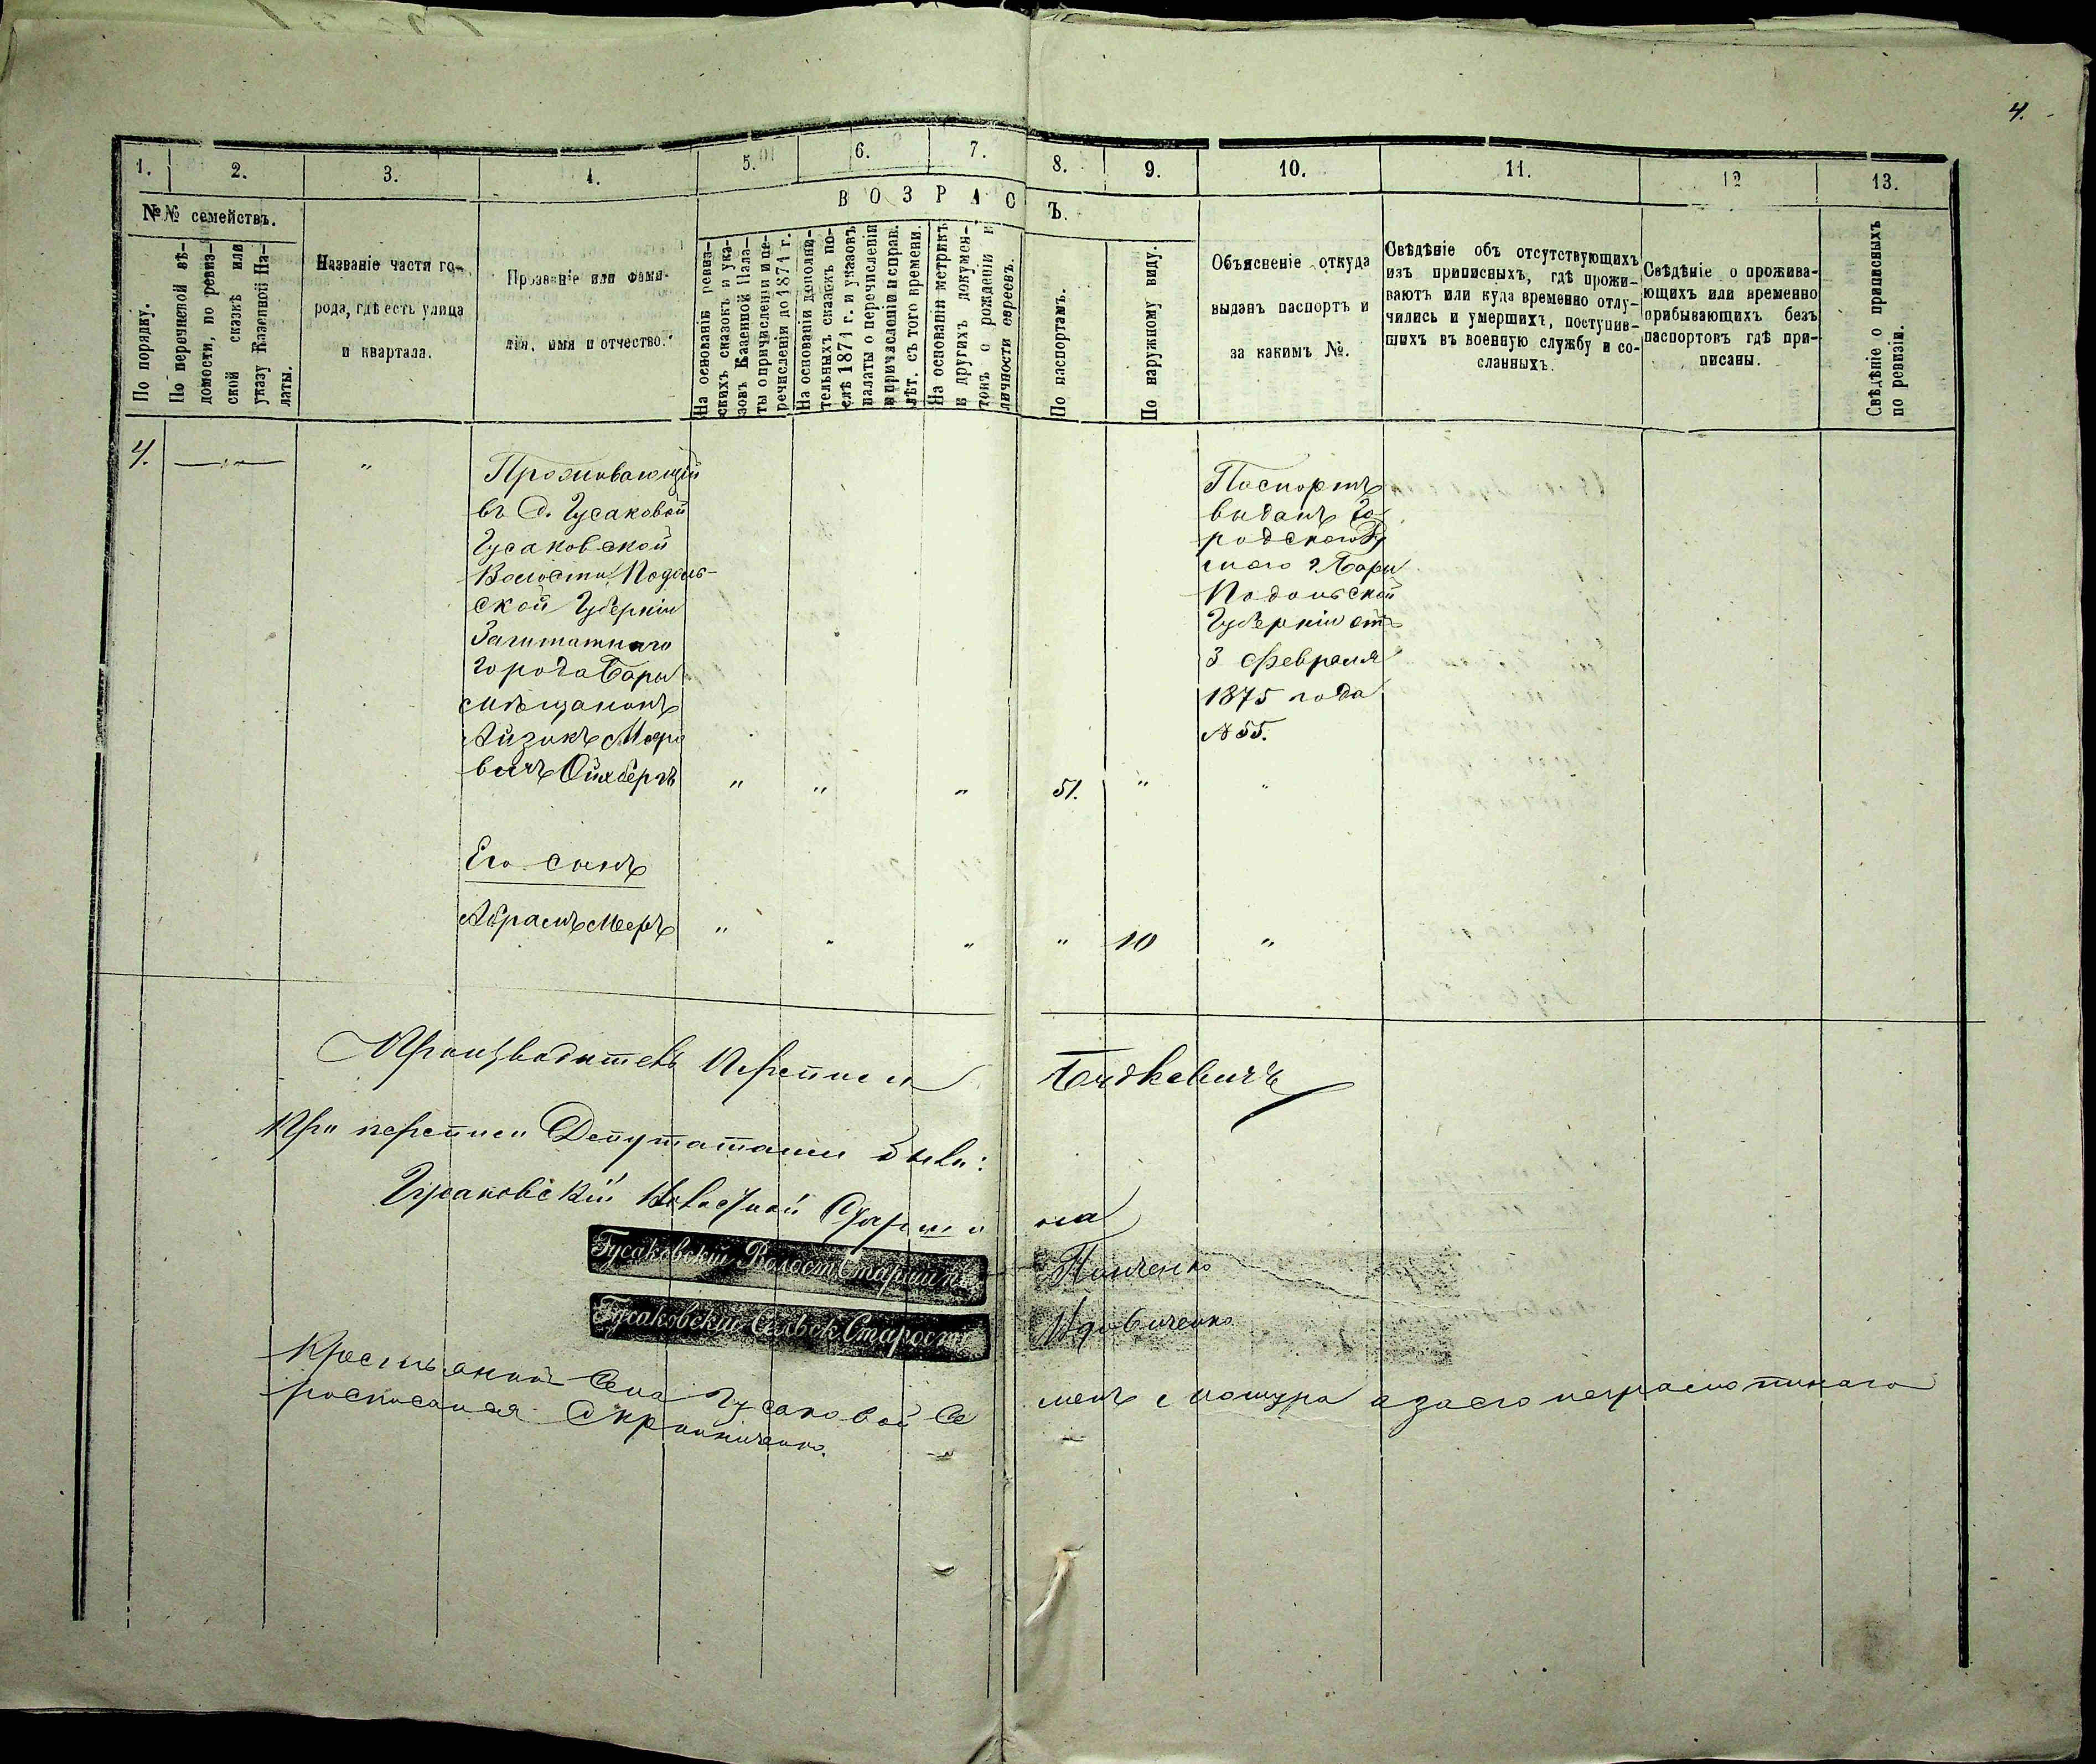 4.
1.
2.
3.
4.
5.
6.
7.
8.
9.
10.
11.
12
13.
№№ семействъ.
ВОЗРАС
Ъ.
По порядку.
По перечневой вѣ-
домости, по ревиз-
ской сказкѣ или
указу Казенной Па-
латы.
Названіе части го-
рода, гдѣ есть улица
и квартала.
Прозваніе или фами-
лія, имя и отчество.
На основаніи ревиз-
скихъ сказокъ и ука-
зовъ Казенной Пала-
ты о причисленіи и пе-
речисленіи до 1874 г.
На основаніи дополни-
тельныхъ сказокъ по-
слѣ 1874 г. и указовъ
палаты о перечисленіи
и причисленіи и справ.
лѣт. съ того времени.
На основаніи метрикъ
и другихъ докумен-
товъ о рожденіи и
личности евреевъ.
По паспортамъ.
По наружному виду.
Объясненіе откуда
выданъ паспортъ и
за какимъ №.
Свѣдѣніе объ отсутствующихъ
изъ приписныхъ, гдѣ прожи-
ваютъ или куда временно отлу-
чились и умершихъ, поступив-
шихъ въ военную службу и со-
сланныхъ.
Свѣдѣніе о прожива-
ющихъ или временно
прибывающихъ безъ
паспортовъ гдѣ при-
писаны.
Свѣдѣніе о приписныхъ
по ревизіи.
4. — „ — „
Проживающій
въ С. Гусаковой
Гусаковской
Волости, Подоль-
ской Губерніи
Заштатнаго
города Бара
мѣщанинъ
Айзикъ
вичъ Ойхбергъ „ „ „ 51. „ „
Паспортъ
выданъ Го-
родскою Ду
мою г. Бара
Подольской
Губерніи отъ
3 Февраля
1875 года
№ 55.
Его сынъ
Абрамъ Мееръ „ „ „ „ 10 „
Производитель Переписи
При переписи Депутатами были:
Гусаковскій Волостной Старши на
Гусаковскій Волост. Старшина
Гусаковскій Сельск. Староста Вдовиченко
Крестьянинъ Села Гусаковой Се менъ а за его неграмотнаго
росписался